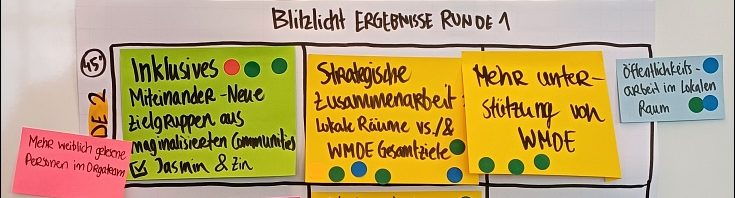 Blitzlicht ERGEBNISSE RUNDE 1
45"
DE 2
Inklusives
Miteinander - Neue
Zielgruppen aus
maginalisierten Communities
Jasmin & Zin
Mehr weiblich gelesene
Personen im Orgateam
Strategische
Zusammenarbeit:
Lokale Räume vs./&
WMDE Gesamtziele
Mehr unter-
stützung von
WMDE
Öffentlichkeits-
arbeit im Lokalen
Raum